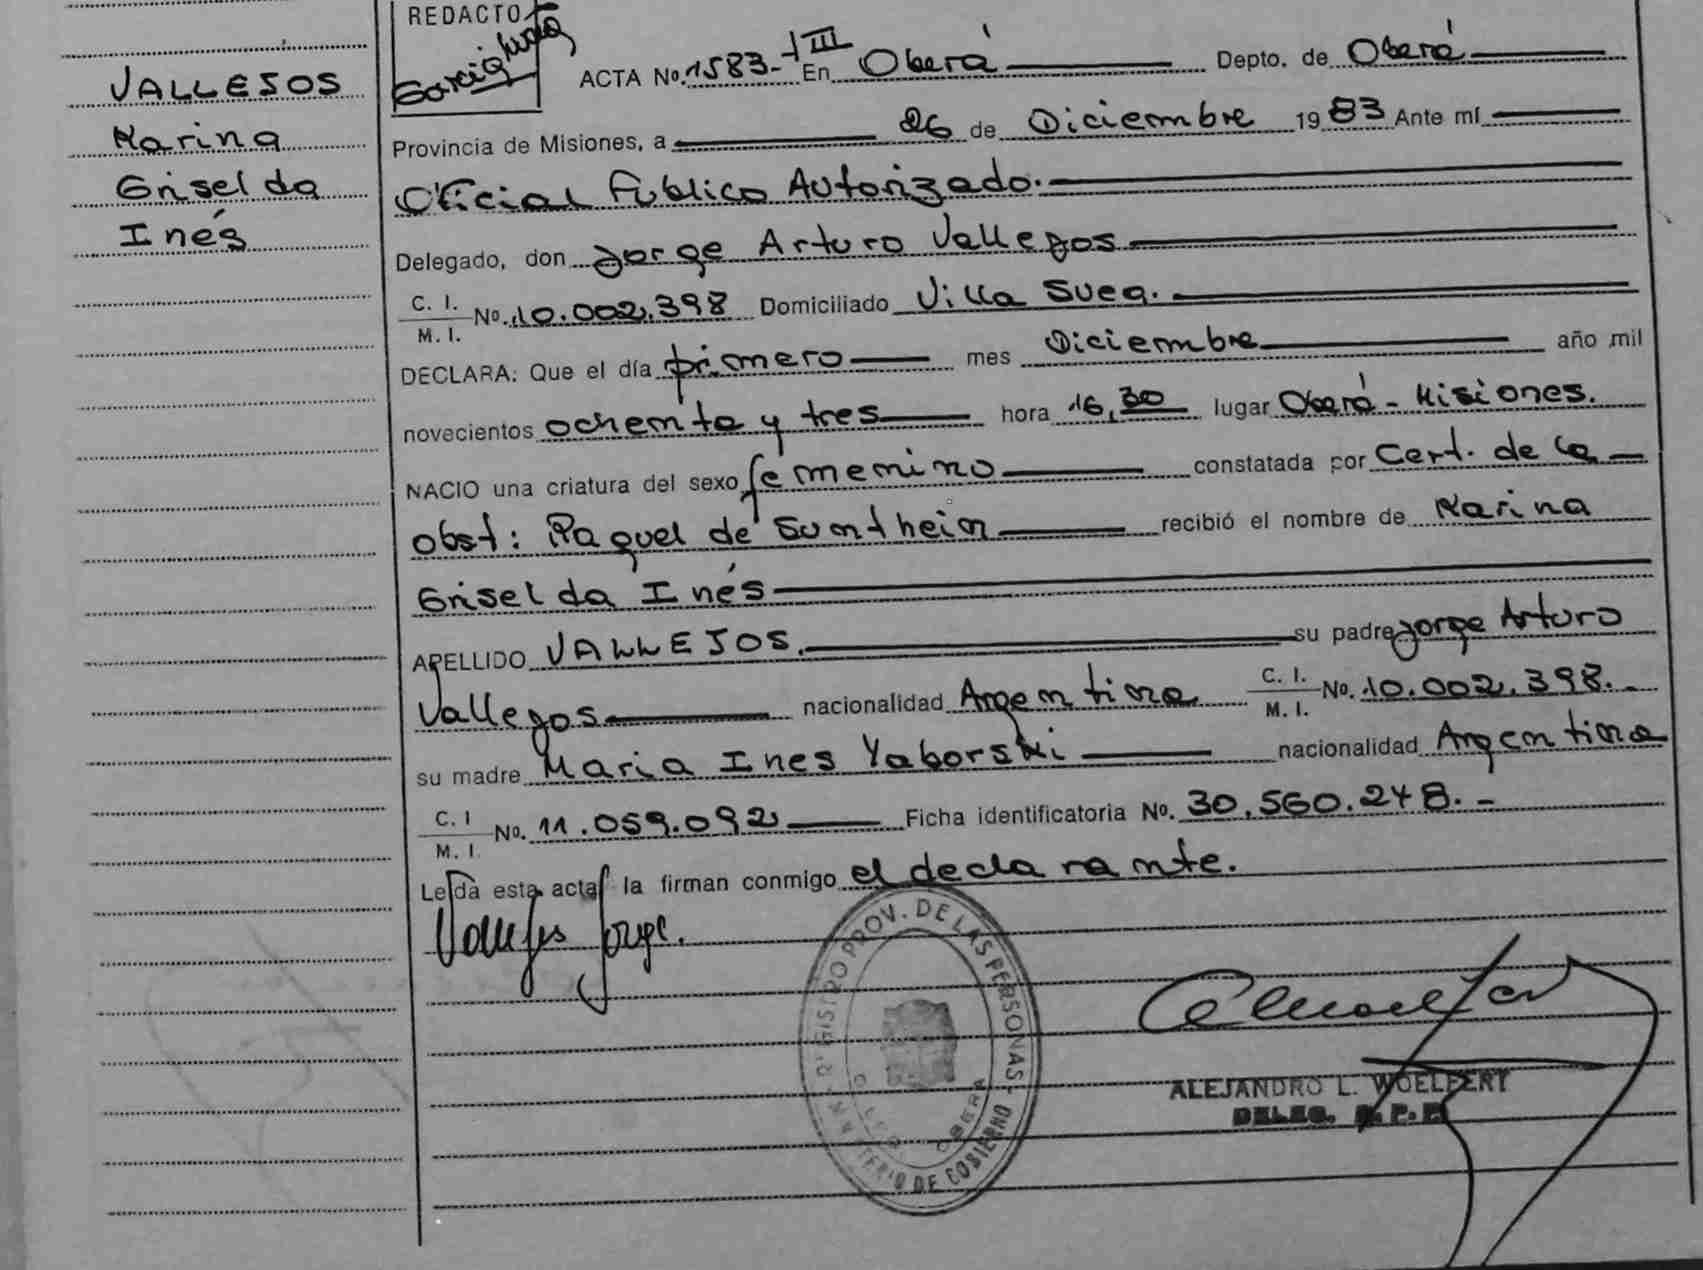 VALLEJOS
Karina
Griselda
Inés
REDACTO
ACTA No. 1583-TIII En Oberá Depto. de Oberá
Provincia de Misiones, a 26 de Diciembre 1983 Ante mí
Oficial Público Autorizado.
Delegado, don Jorge Arturo Vallejos
C. I. / M. I. No. 10.002.398 Domiciliado Villa Svea.
DECLARA: Que el día primero mes Diciembre año mil
novecientos ochenta y tres hora 16,30 lugar Oberá - Misiones.
NACIO una criatura del sexo femenino constatada por Cert. de la
obst: Raquel de Sontheim recibió el nombre de Karina
Griselda Inés
APELLIDO VALLEJOS. su padre Jorge Arturo
Vallejos nacionalidad Argentina C. I. / M. I. No. 10.002.398.-
su madre Maria Ines Yaborski nacionalidad Argentina
C. I / M. I. No. 11.059.092 Ficha identificatoria No. 30.560.248.-
Leída esta acta la firman conmigo el declarante.
Vallejos Jorge.
REGISTRO PROV. DE LAS PERSONAS
MINISTERIO DE GOBIERNO
OBERA
ALEJANDRO L. WOELFERT
DELEG. R. P. P.